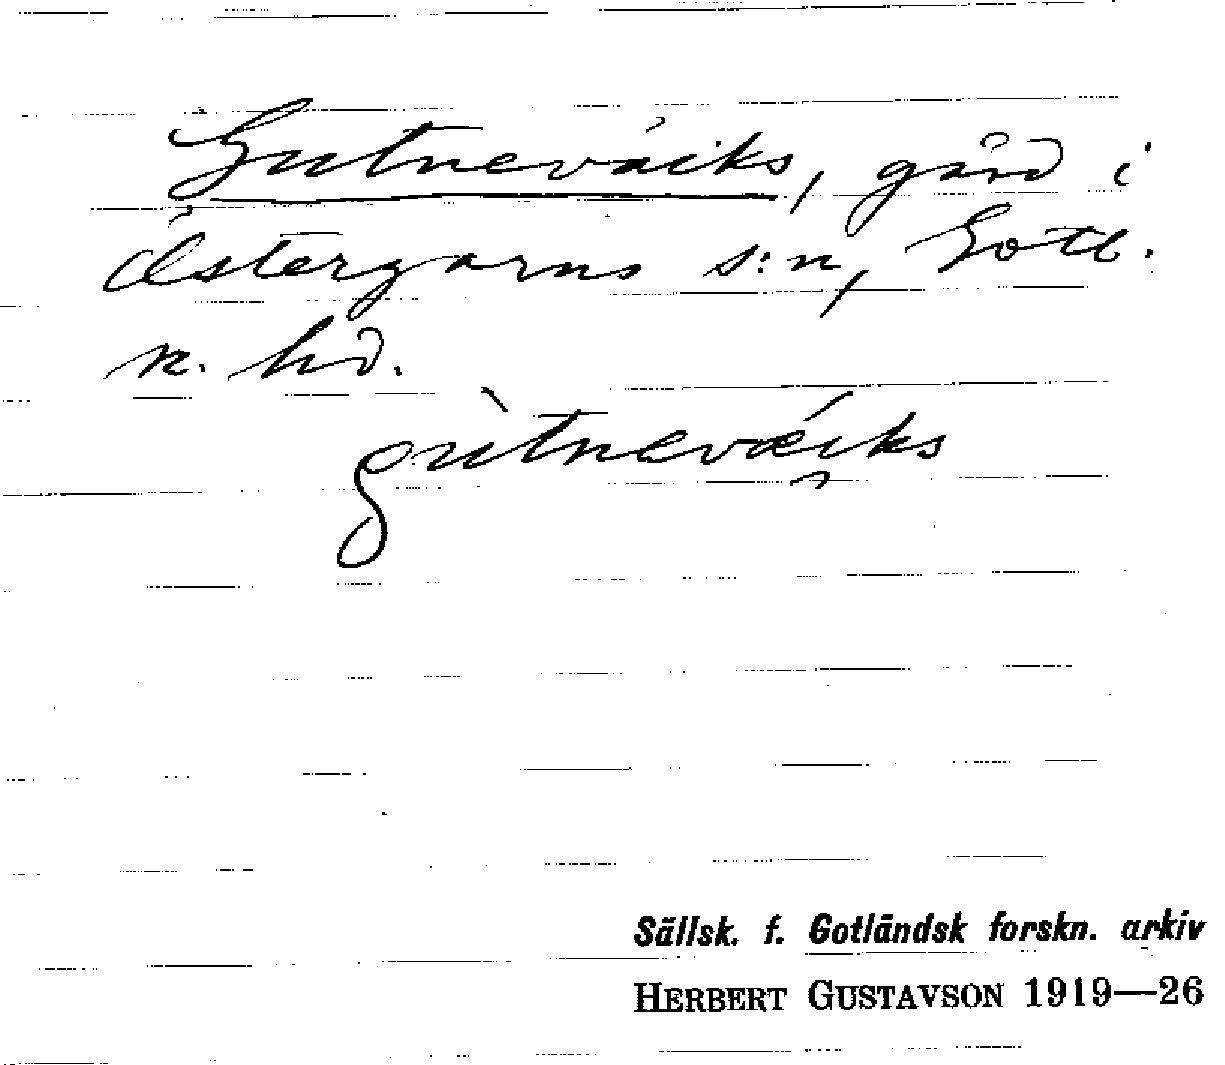 Gutnevaiks, gård i
Östergarns s:n, Gotl.
n. hd.
gùtneváiks
Sällsk. f. Gotländsk forskn. arkiv
HERBERT GUSTAVSON 1919—26